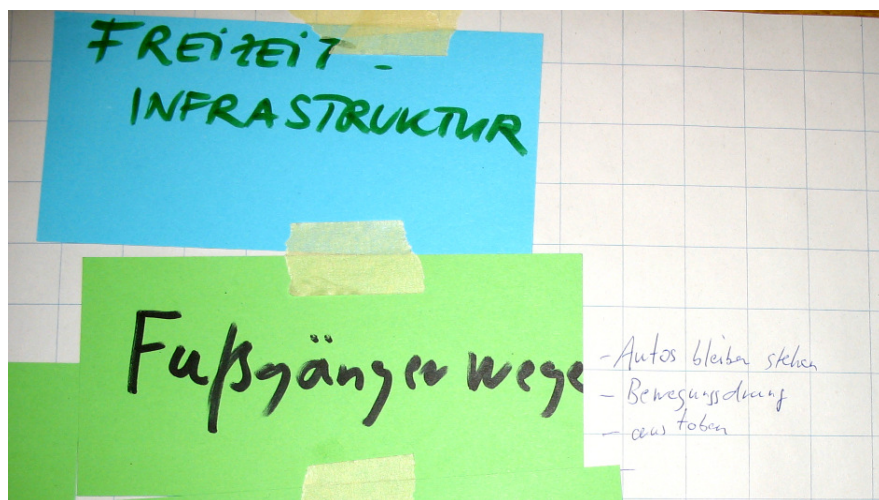 FREIZEIT-
INFRASTRUKTUR
Fußgängerwege
- Autos bleiben stehen
- Bewegungsdrang
- austoben
-